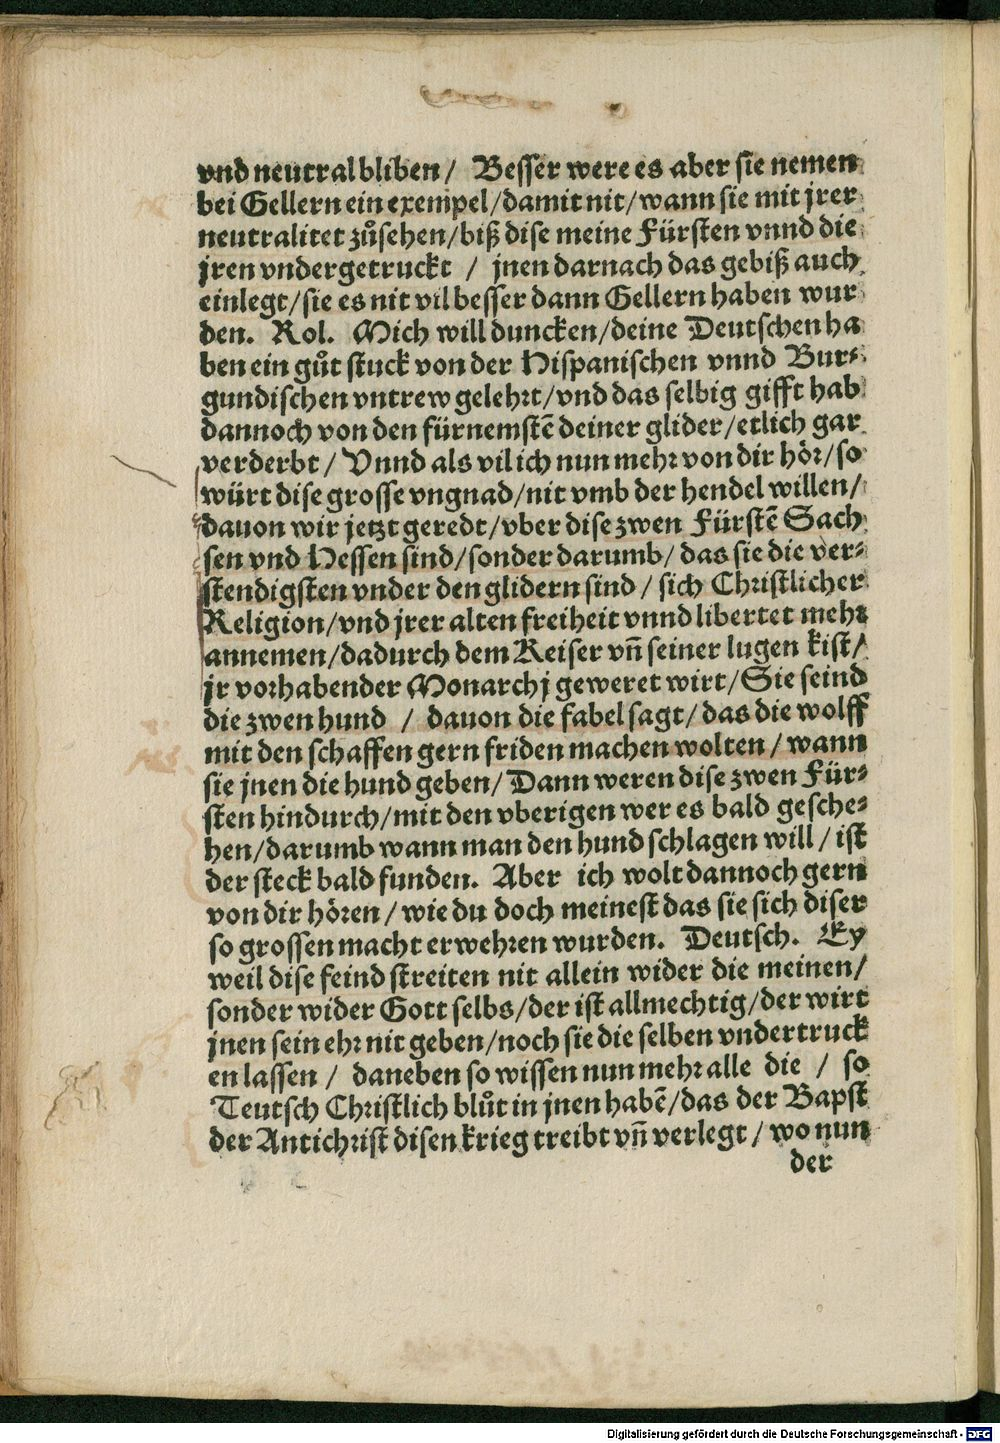 vnd neutral bliben / Besser were es aber sie nemen
bei Gellern ein exempel / damit nit / wann sie mit jrer
neutralitet zůsehen / biß dise meine Fürsten vnnd die
jren vndergetruckt / jnen darnach das gebiß auch
einlegt / sie es nit vil besser dann Gellern haben wur
den. Rol. Mich will duncken / deine Deutschen ha
ben ein gůt stuck von der Hispanischen vnnd Bur⸗
gundischen vntrew gelehrt / vnd das selbig gifft hab
dannoch von den fürnemstē deiner glider / etlich gar
verderbt / Vnnd als vil ich nun mehr von dir hör / so
würt dise grosse vngnad / nit vmb der hendel willen /
dauon wir jetzt geredt / vber dise zwen Fürstē Sach
sen vnd Hessen sind / sonder darumb / das sie die ver⸗
stendigsten vnder den glidern sind / sich Christlicher
Religion / vnd jrer alten freiheit vnnd libertet mehr
annemen / dadurch dem Keiser vñ seiner lugen kist /
jr vorhabender Monarchj geweret wirt / Sie seind
die zwen hund / dauon die fabel sagt / das die wolff
mit den schaffen gern friden machen wolten / wann
sie jnen die hund geben / Dann weren dise zwen Für⸗
sten hindurch / mit den vberigen wer es bald gesche⸗
hen / darumb wann man den hund schlagen will / ist
der steck bald funden. Aber ich wolt dannoch gern
von dir hören / wie du doch meinest das sie sich diser
so grossen macht erwehren wurden. Deutsch. Ey
weil dise feind streiten nit allein wider die meinen /
sonder wider Gott selbs / der ist allmechtig / der wirt
jnen sein ehr nit geben / noch sie die selben vndertruck
en lassen / daneben so wissen nun mehr alle die / so
Teutsch Christlich blůt in jnen habē / das der Bapst
der Antichrist disen krieg treibt vñ verlegt / wo nun
der
Digitalisierung gefördert durch die Deutsche Forschungsgemeinschaft - DFG